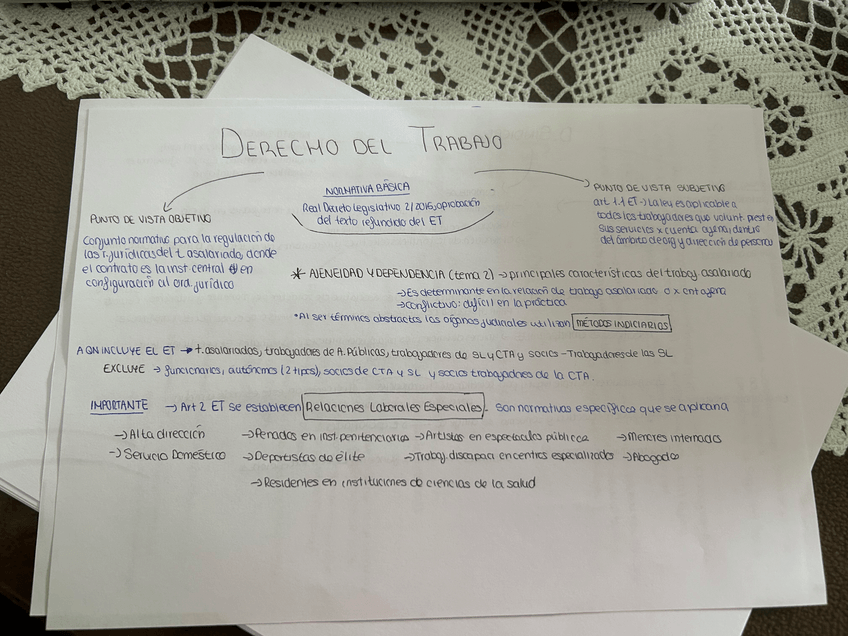 DERECHO DEL TRABAJO
NORMATIVA BÁSICA
Real Decreto Legislativo 2/2015, aprobación
del texto refundido del ET
PUNTO DE VISTA OBJETIVO
Conjunto normativo para la regulación de
las r. jurídicas del t. asalariado, donde
el contrato es la inst central en
configuración al ord. jurídico
PUNTO DE VISTA SUBJETIVO
art 1.1 ET → la ley es aplicable a
todos los trabajadores que volunt. prest
sus servicios x cuenta ajena, dentro
del ámbito de org y dirección de persona
* AJENEIDAD Y DEPENDENCIA (tema 2) → principales características del trabaj. asalariado
→ Es determinante en la relación de trabajo asalariado o x cnt ajena
→ conflictivo: difícil en la práctica
*Al ser términos abstractos los órganos judiciales utilizan MÉTODOS INDICIARIOS
INCLUYE EL ET → t. asalariados, trabajadores de A. Públicas, trabajadores de SL y CTA y socios-Trabajadores de las SL
EXCLUYE → funcionarios, autónomos (2 tipos), socios de CTA y SL y socios trabajadores de la CTA.
IMPORTANTE → Art 2 ET se establecen Relaciones Laborales Especiales. Son normativas específicas que se aplican a
→ Alta dirección → Penados en inst. penitenciarias → Artistas en espectáculos públicos → Menores internados
→ Servicio Doméstico → Deportistas de élite → Trabaj. discapaci en centros especializado → Abogados
→ Residentes en instituciones de ciencias de la salud